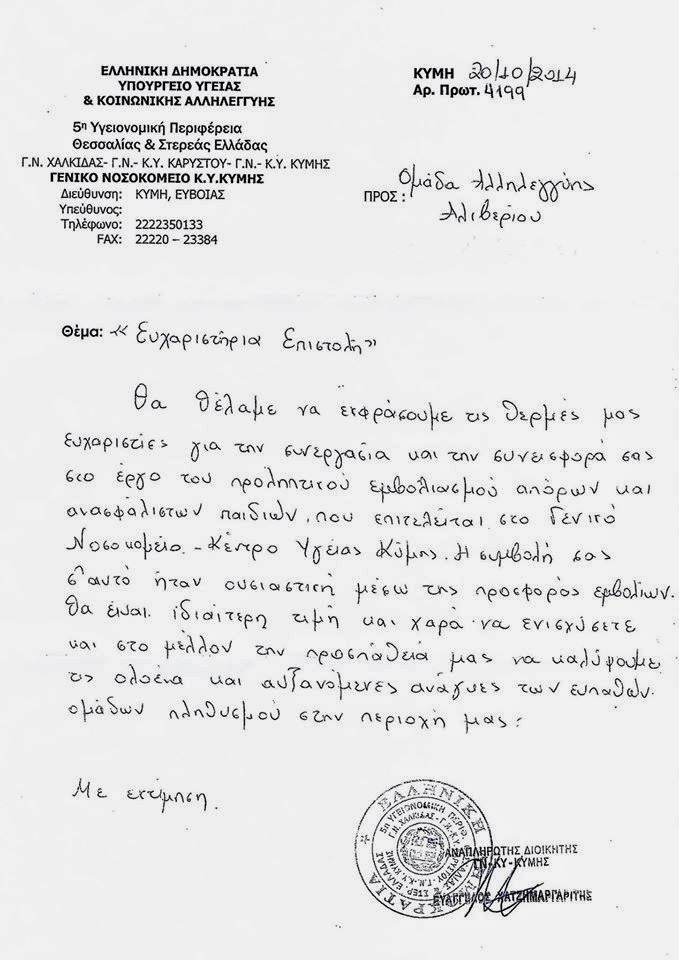 ΕΛΛΗΝΙΚΗ ΔΗΜΟΚΡΑΤΙΑ
ΥΠΟΥΡΓΕΙΟ ΥΓΕΙΑΣ
& ΚΟΙΝΩΝΙΚΗΣ ΑΛΛΗΛΕΓΓΥΗΣ
5η Υγειονομική Περιφέρεια
Θεσσαλίας & Στερεάς Ελλάδας
Γ.Ν. ΧΑΛΚΙΔΑΣ- Γ.Ν.- Κ.Υ. ΚΑΡΥΣΤΟΥ- Γ.Ν.- Κ.Υ. ΚΥΜΗΣ
ΓΕΝΙΚΟ ΝΟΣΟΚΟΜΕΙΟ Κ.Υ.ΚΥΜΗΣ
Διεύθυνση: ΚΥΜΗ, ΕΥΒΟΙΑΣ
Υπεύθυνος:
Τηλέφωνο: 2222350133
FAX: 22220 – 23384
ΚΥΜΗ 20/10/2014
Αρ. Πρωτ. 4199
ΠΡΟΣ: Ομάδα Αλληλεγγύης
Αλιβερίου
Θέμα: «Ευχαριστήρια Επιστολή»
Θα θέλαμε να εκφράσουμε τις θερμές μας
ευχαριστίες για την συνεργασία και την συνεισφορά σας
στο έργο του προληπτικού εμβολιασμού απόρων και
ανασφάλιστων παιδιών, που επιτελείται στο Γενικό
Νοσοκομείο - Κέντρο Υγείας Κύμης. Η συμβολή σας
σ'αυτό ήταν ουσιαστική μέσω της προσφοράς εμβολίων.
Θα είναι ιδιαίτερη τιμή και χαρά να ενισχύσετε
και στο μέλλον την προσπάθειά μας να καλύψουμε
τις ολοένα και αυξανόμενες ανάγκες των ευπαθών
ομάδων πληθυσμού στην περιοχή μας.
Με εκτίμηση.
ΑΝΑΠΛΗΡΩΤΗΣ ΔΙΟΙΚΗΤΗΣ
ΓΝ-ΚΥ-ΚΥΜΗΣ
ΕΥΑΓΓΕΛΟΣ ΧΑΤΖΗΜΑΡΓΑΡΙΤΗΣ